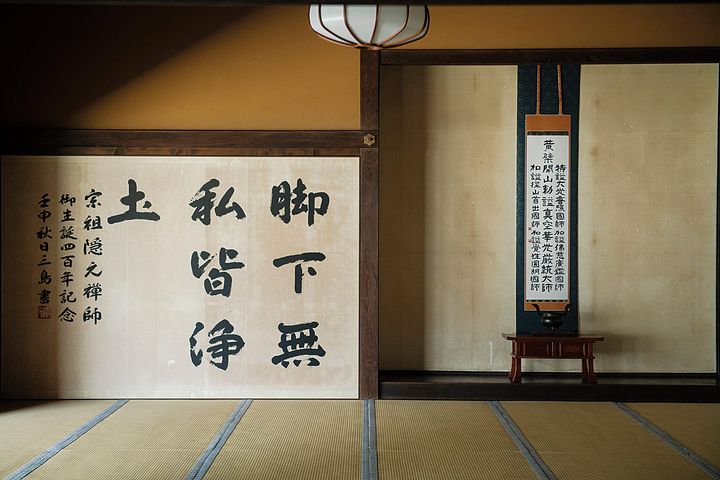 脚下無
私皆浄
土
宗祖隠元禪師
御生誕四百年記念
壬申秋日三島書
特諡大光普照國師加諡佛慈廣鑑國師
黄檗開山勅諡真空華光厳統大師
加諡徑山首出國師加諡覺性圓明國師